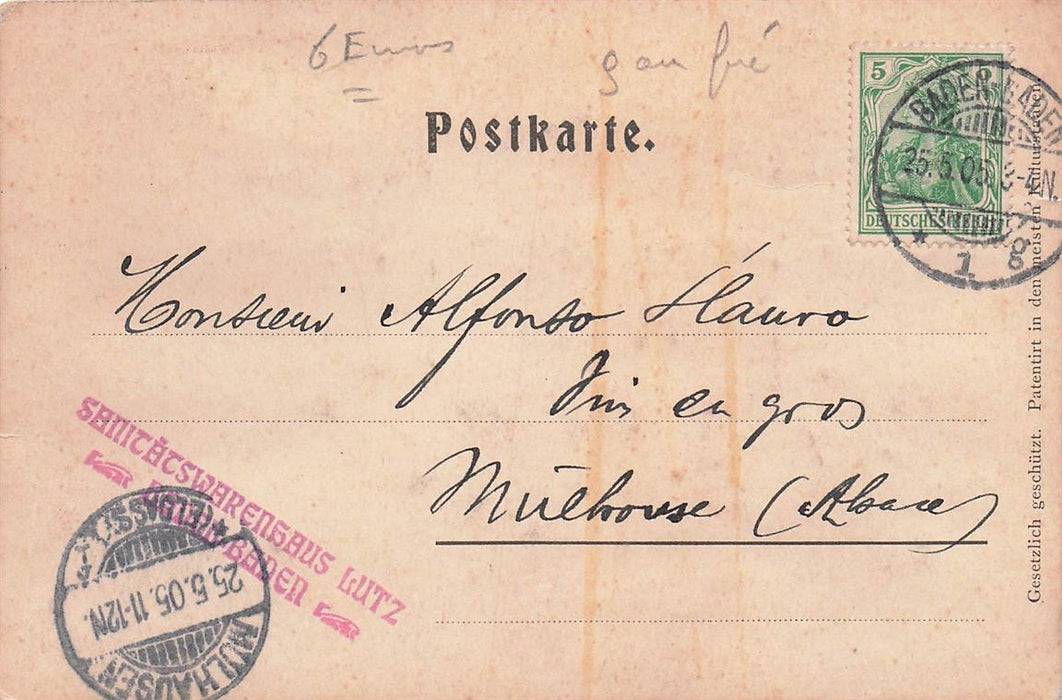 6 Euros
gaufré
Postkarte.
5
DEUTSCHES REICH
BADEN-BADEN
25.5.05. 3-4N.
* 1 g
Monsieur Alfonso Hauro
Vins en gros
Mülhouse (Alsace)
SANITÄTSWARENHAUS LUTZ
BADEN-BADEN
MÜLHAUSEN
25.5.05.11-12N.
(ELSASS)
Gesetzlich geschützt. Patentirt in den meisten Kulturstaaten.